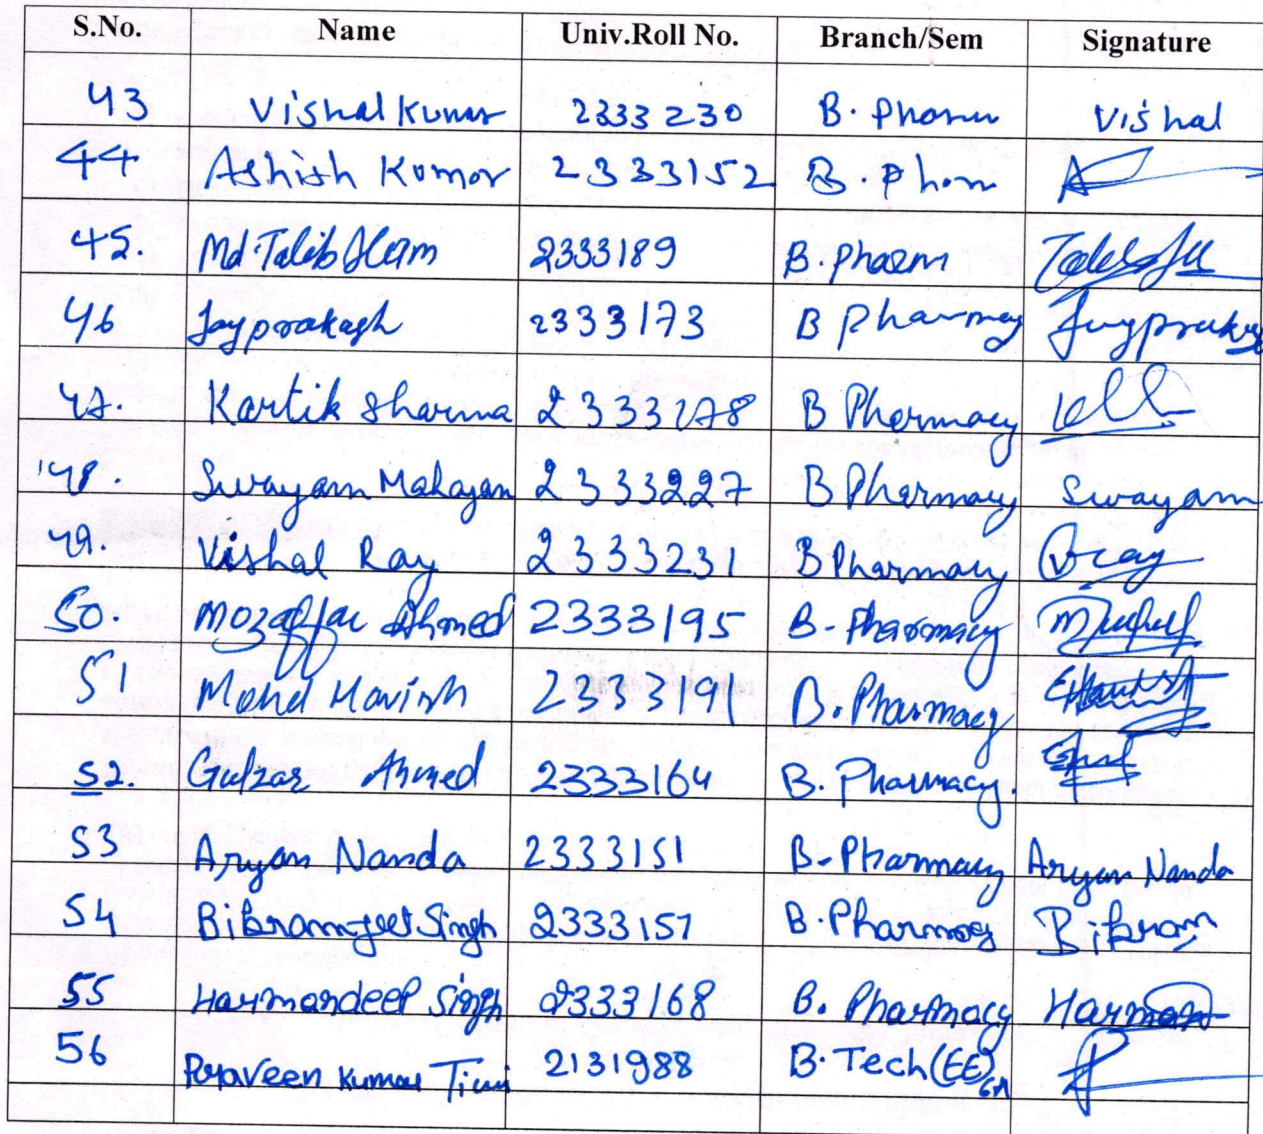 S.No. Name Univ.Roll No. Branch/Sem Signature
43 Vishal Kumar 2333230 B. Pharm Vishal
44 Ashish Kumar 2333152 B. Pharm
45. Md. Talib Alam 2333189 B. Pharm
46 Jayprakash 2333173 B Pharmacy Jayprakash
47. Kartik Sharma 2333178 B Pharmacy
48. Swayam Mahajan 2333227 B Pharmacy Swayam
49. Vishal Ray 2333231 B Pharmacy Vray
50. Mozaffar Ahmed 2333195 B-Pharmacy
51 Mohd Harish 2333191 B. Pharmacy
52. Gulzar Ahmed 2333164 B. Pharmacy.
53 Aryan Nanda 2333151 B-Pharmacy Aryan Nanda
54 Bikramjeet Singh 2333157 B. Pharmacy Bikram
55 Harmandeep Singh 2333168 B. Pharmacy Harman
56 Praveen Kumar 2131988 B.Tech (EE)